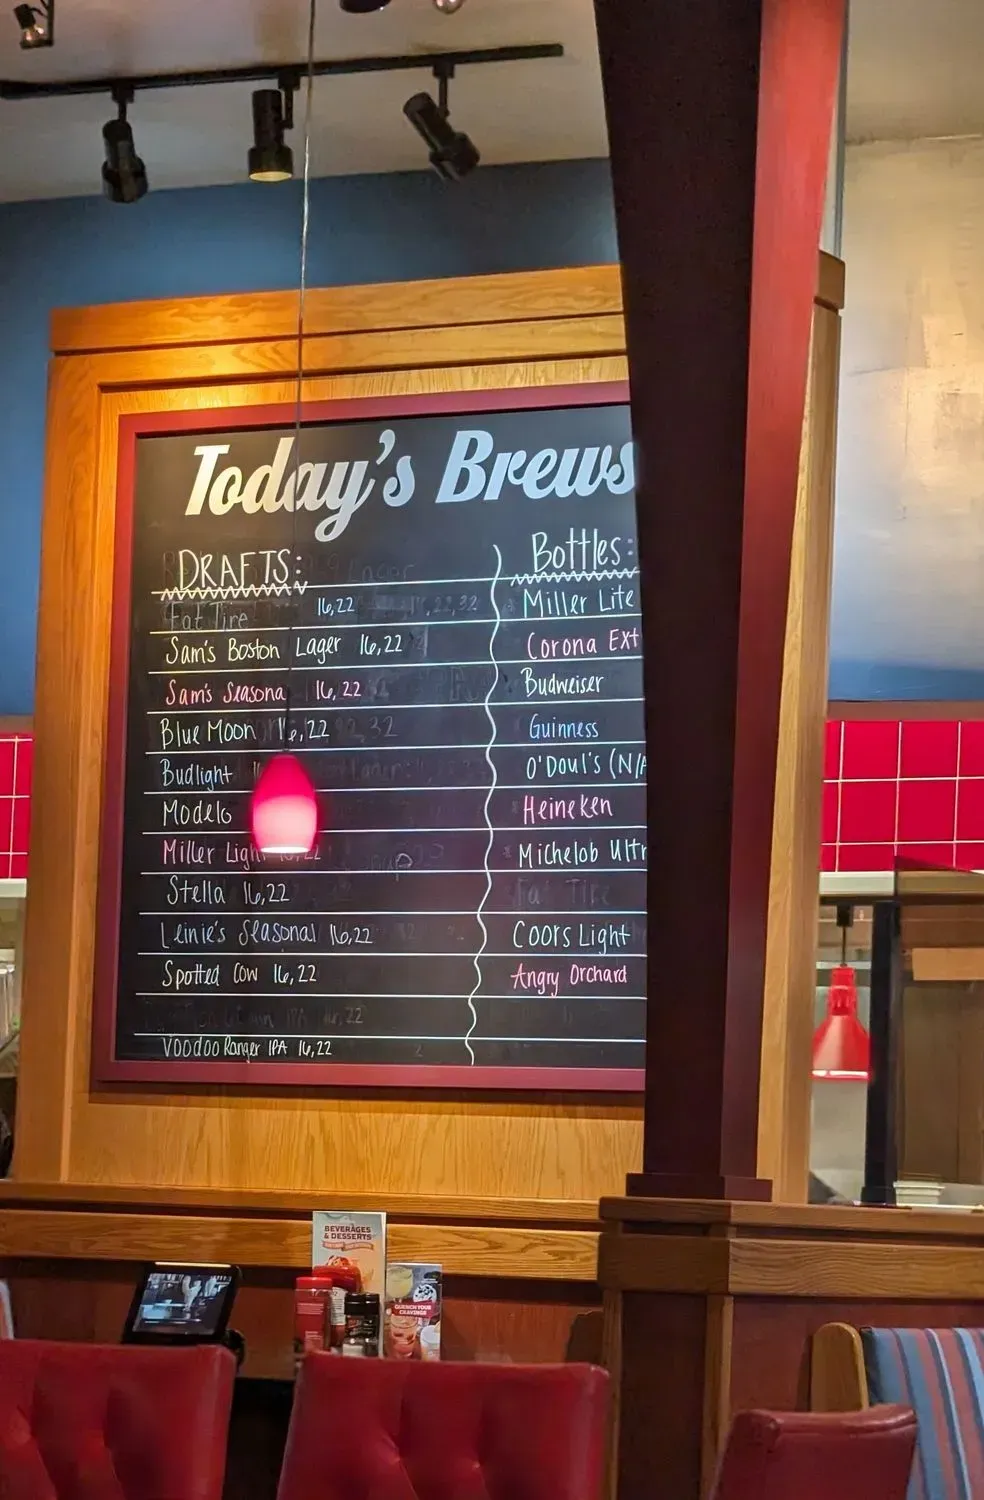 Today's Brews
DRAFTS:
Fat Tire 16,22
Sam's Boston Lager 16,22
Sam's Seasona 16,22
Blue Moon 16,22
Budlight
Modelo
Miller Ligh
Stella 16,22
Leinie's Seasonal 16,22
Spotted Cow 16,22
Voodoo Ranger IPA 16,22
Bottles:
Miller Lite
Corona Ext
Budweiser
Guinness
O'Doul's (N/A
Heineken
Michelob Ultr
Fat Tire
Coors Light
Angry Orchard
BEVERAGES
& DESSERTS
QUENCH YOUR
CRAVINGS